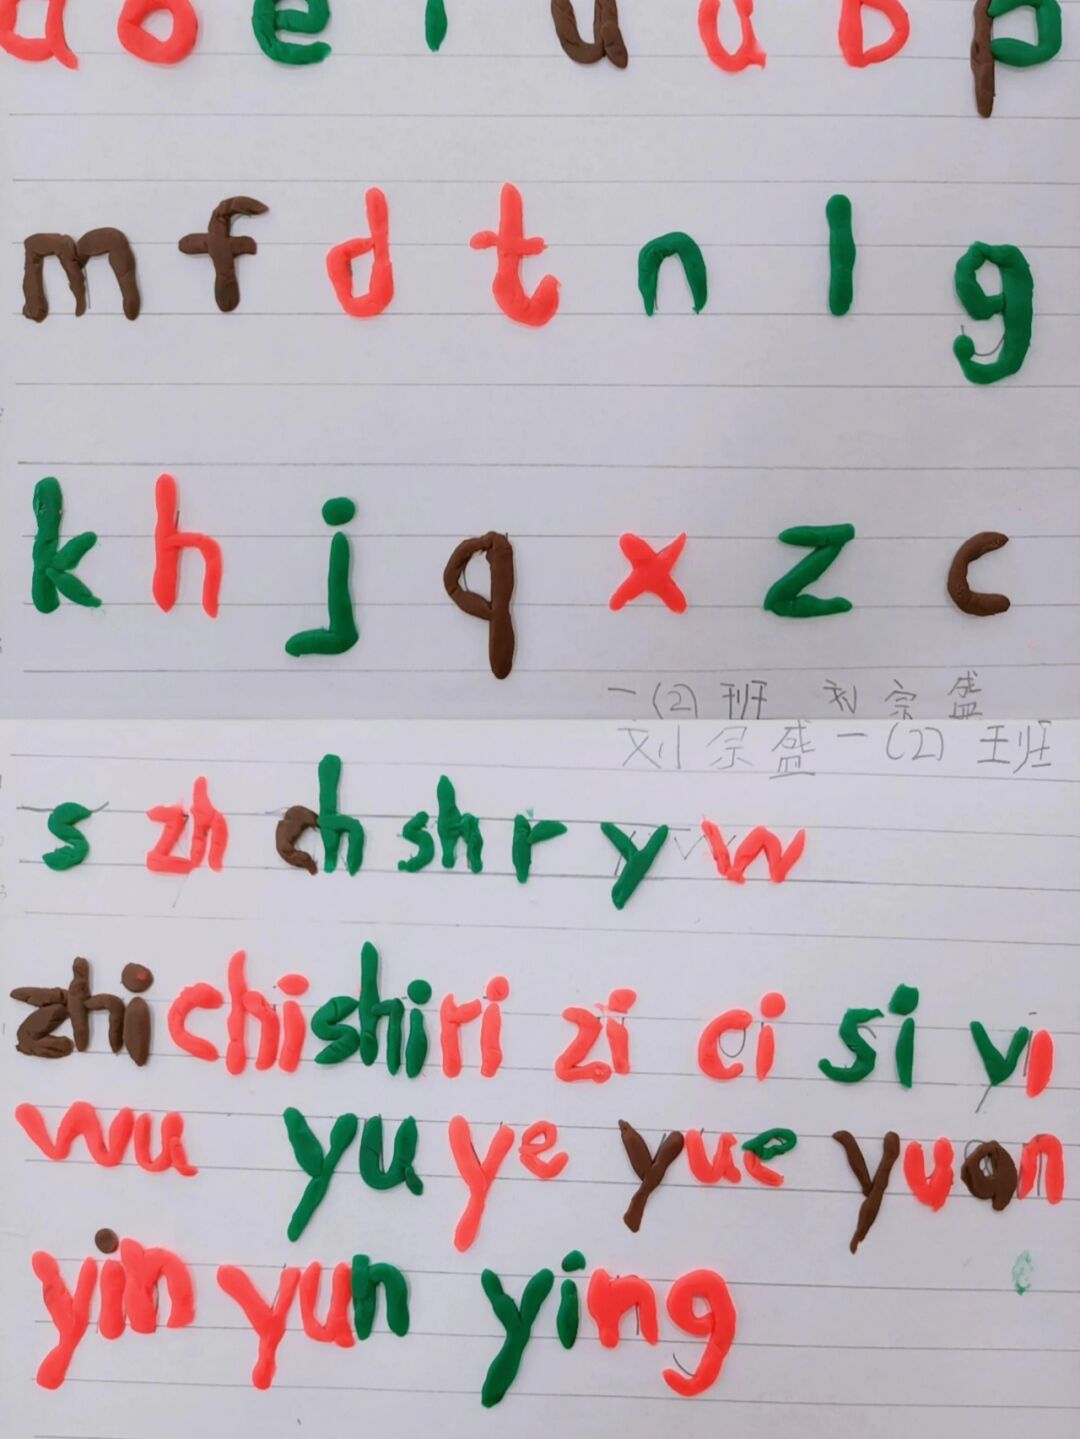 a o e i u ü b p
m f d t n l g
k h j q x z c
一(2)班 刘宗盛
刘宗盛一(2)班
s zh ch sh r y w
zhi chi shi ri zi ci si yi
wu yu ye yue yuan
yin yun ying